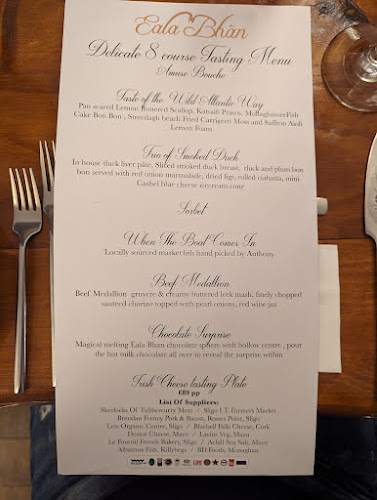 Eala Bhán
Delicate 8 course Tasting Menu
Amuse Bouche
Taste of the Wild Atlantic Way
Pan seared Lemon Buttered Scallop, Kataifi Prawn, Mullaghmore Fish
Cake Bon Bon , Streedagh beach Fried Carrigeen Moss and Saffron Aioli
Lemon Foam
Trio of Smoked Duck
In house duck liver pâté, Sliced smoked duck breast, duck and plum bon
bon served with red onion marmalade, dried figs, rolled ciabatta, mini
Cashel blue cheese icecream cone
Sorbet
When The Boat Comes In
Locally sourced market fish hand picked by Anthony
Beef Medallion
Beef Medallion gruyere & creamy buttered leek mash, finely chopped
sauteed chorizo topped with pearl onions, red wine jus
Chocolate Surprise
Magical melting Eala Bhan chocolate sphere with hollow centre , pour
the hot milk chocolate all over to reveal the surprise within
Irish Cheese tasting Plate
€89 pp
List Of Suppliers:
Sherlocks Of Tubbercurry Meat / Sligo I.T. Farmers Market
Brendan Forrey Pork & Bacon, Rosses Point, Sligo
Lees Organic Centre, Sligo / Bluebell Falls Cheese, Cork
Dozios Cheese, Mayo / Lavins Veg, Mayo
Le Fournil French Bakery, Sligo / Achill Sea Salt, Mayo
Albatross Fish, Killybegs / BD Foods, Monaghan